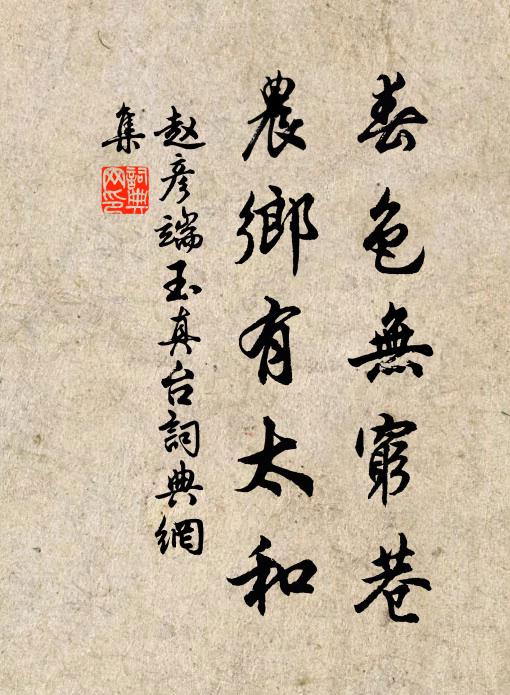 春色無窮巷
農鄉有太和
赵彦端玉真台詞典網
集
詞典
网印